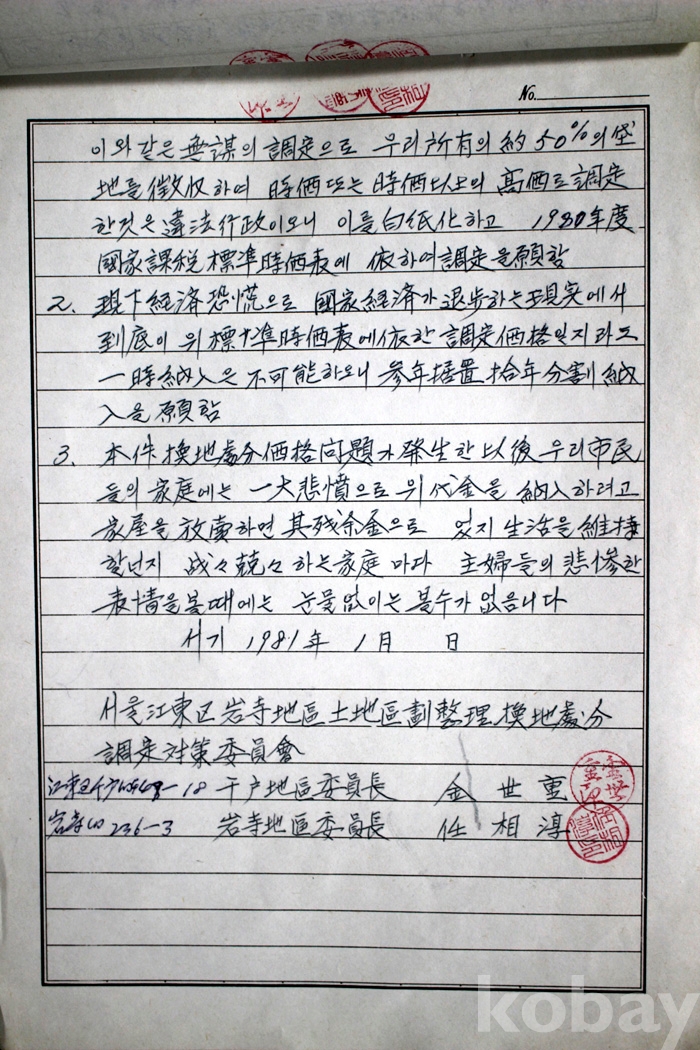 No.
이와같은 無謀의 調定으로 우리所有의 約 50%의 垈
地를 徵収하여 時価또는 時価以上의 高価로 調定
한것은 違法行政이오니 이를 白紙化하고 1980年度
國家課税標準時価表에 依하여 調定을 願함
2. 現下 経済恐慌으로 國家経済가 退步하는 現実에서
到底이 위 標準時価表에 依한 調定価格일지라도
一時納入은 不可能하오니 参年据置 拾年分割 納
入을 願함
3. 本件 換地處分価格問題가 発生한 以後 우리市民
들의 家庭에는 一大悲憤으로 위代金을 納入하려고
家屋을 放賣하면 其残余金으로 었지 生活을 維持
할넌지 战々兢々하는 家庭마다 主婦들의 悲惨한
表情을 볼때에는 눈물없이는 볼수가 없읍니다
서기 1981年 1月 日
서울江東区岩寺地區土地區劃整理換地處分
調定対策委員會
江東区 468-18 千戸地區委員長 金世重
岩寺洞 236-3 岩寺地區委員長 任相淳
kobay